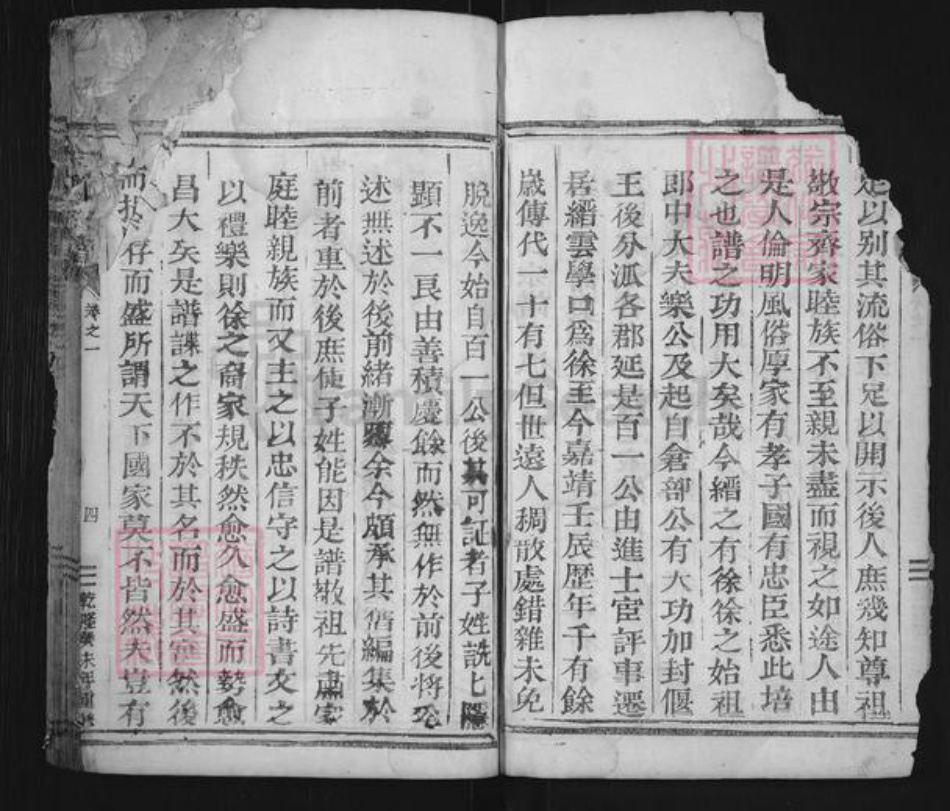 足以别其流俗下足以開示後人庶幾知尊祖
敬宗齊家睦族不至親未盡而視之如途人由
是人倫明風俗厚家有孝子國有忠臣悉此培
之也譜之功用大矣哉今縉之有徐徐之始祖
郎中大夫樂公及起自倉部公有大功加封偃
王後分泒各郡延是百一公由進士宦評事遷
居縉雲學口爲徐至今嘉靖壬辰歴年千有餘
歲傳代一十有七但世遠人稠散處錯雜未免
脫逸今始自百一公後其可証者子姓詵七隱
顯不一良由善積慶餘而然無作於前後將
述無述於後前緒漸余今頗承其舊編集於
前者重於後庶使子姓能因是譜敬祖先肅家
庭睦親族而又主之以忠信守之以詩書文之
以禮樂則徐之裔家規秩然愈久愈盛而勢愈
昌大矣是譜諜之作不於其名而於其然後
而存而盛所謂天下國家莫不皆然夫豈有
卷之一
四
乾隆癸未年重修